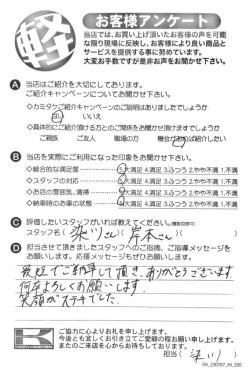 軽
お客様アンケート
当店では、お買い上げ頂いたお客様の声を可能
な限り現場に反映し、お客様により良い商品と
サービスを提供する事に努めています。
大変お手数ですが是非お声をお聞かせ下さい。
A 当店はご紹介を大切にしております。
ご紹介キャンペーンについてお聞かせ下さい。
◇カミタケご紹介キャンペーンのご説明はありましたでしょうか
はい いいえ
◇具体的にご紹介頂ける方とのご関係をお聞かせ頂けますでしょうか
ご親族 ご友人 職場の方 機会が有れば紹介したい
B 当店を実際にご利用になった印象をお聞かせ下さい。
◇総合的な満足度 5.大満足 4.満足 3.ふつう 2.やや不満 1.不満
◇スタッフの対応 5.大満足 4.満足 3.ふつう 2.やや不満 1.不満
◇お店の雰囲気、清掃 5.大満足 4.満足 3.ふつう 2.やや不満 1.不満
◇納車時のお車の状態 5.大満足 4.満足 3.ふつう 2.やや不満 1.不満
C 評価したいスタッフがいれば教えてください。(複数回答可)
スタッフ名( 染川さん)(岸本さん )
D 担当させて頂きましたスタッフへのご指摘、ご指導メッセージを
お願いします。応援メッセージもぜひお願いします。
最短でご納車して頂き、ありがとうございます
何卒よろしくお願いします。
笑顔がステキでした。
K
ご協力に心よりお礼を申し上げます。
今後とも宜しくお引き立てご愛顧の程お願い申し上げます。
またのご来店を心からお待ちしております。
担当( 染川 )
SH_230707_MI_500